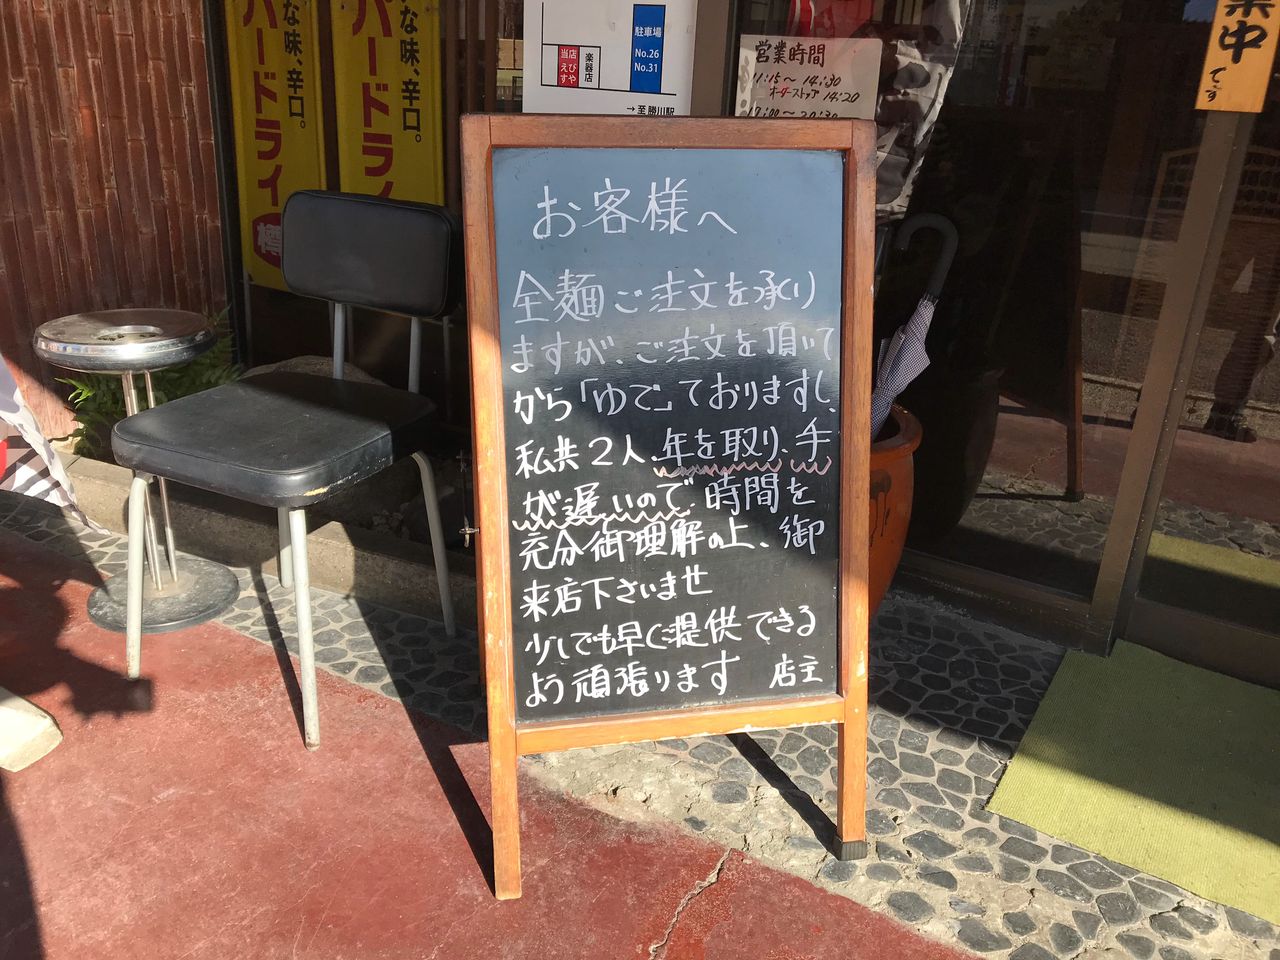 な味、辛口。
パードライ
樽
な味、辛口。
パードライ
駐車場
No.26
No.31
当店
えびすや
楽器店
→至勝川駅
営業時間
11:15〜14:30
オーダーストップ 14:20
業中
です
お客様へ
全麺ご注文を承り
ますが、ご注文を頂いて
から「ゆで」ておりますし、
私共2人、年を取り、手
が遅いので時間を
充分御理解の上、御
来店下さいませ
少しでも早く提供できる
よう頑張ります 店主